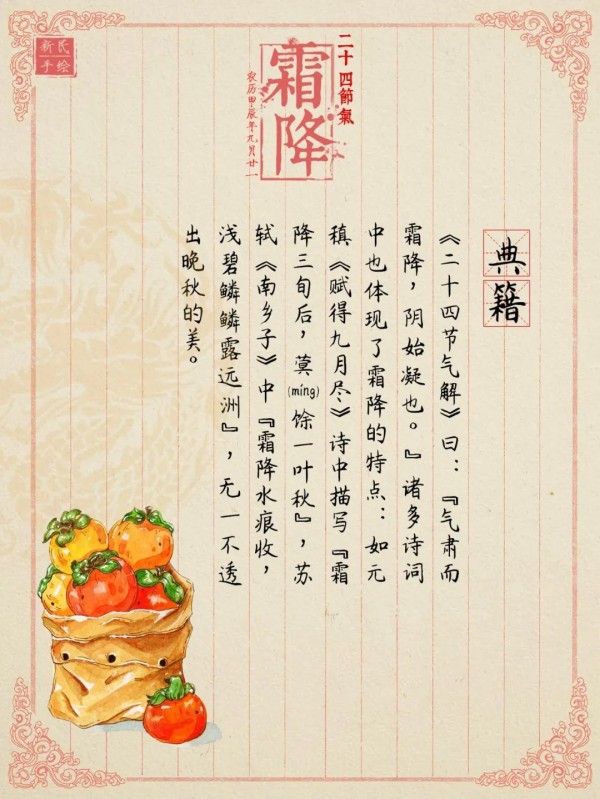 二十四節氣
霜降
农历甲辰年九月廿一
典籍
《二十四节气解》曰：『气肃而
霜降，阴始凝也。』诸多诗词
中也体现了霜降的特点：如元
稹《赋得九月尽》诗中描写『霜
降三旬后，蓂(míng)馀一叶秋』，苏
轼《南乡子》中『霜降水痕收，
浅碧鳞鳞露远洲』，无一不透
出晚秋的美。
新民
手绘